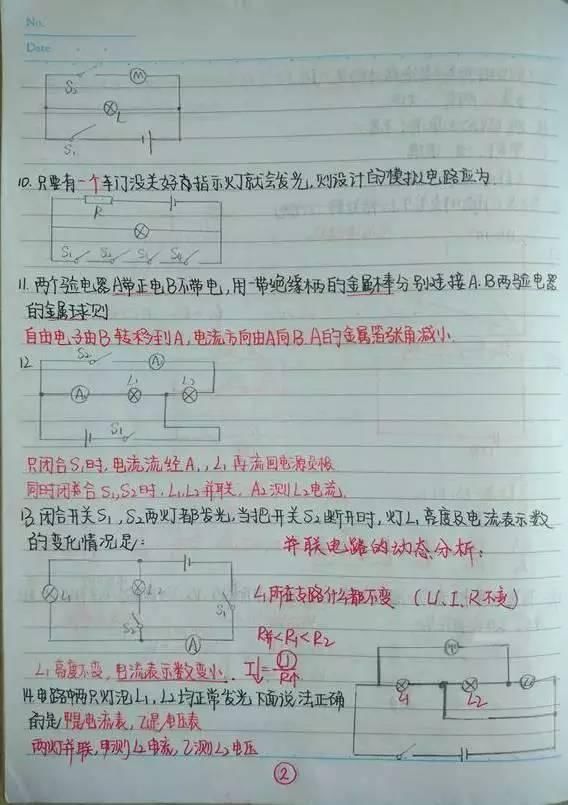 No.
Date
S₂ M
L
S₁
10. 只要有一个车门没关好指示灯就会发光,则设计的模拟电路应为
R
S₁ S₂ S₃ S₄
11. 两个验电器A带正电B不带电,用一带绝缘柄的金属棒分别连接A.B两验电器
的金属球则
自由电子由B转移到A,电流方向由A向B.A的金属箔张角减小.
12
S₂ A
A L₁ L₂
S₁
只闭合S₁时,电流流经A₁,L₁再流回电源负极
同时闭合S₁,S₂时,L₁,L₂并联,A₂测L₂电流,
13. 闭合开关S₁,S₂两灯都发光,当把开关S₂断开时,灯L₁亮度及电流表示数
的变化情况是:
并联电路的动态分析:
L₁ L₂ S₁
S₂ A
L₁所在支路什么都不变 (U、I、R不变)
R并<R₁<R₂
L₁亮度不变,电流表示数变小. I↓=U/R↑
14. 电路中两只灯泡L₁,L₂均正常发光下面说法正确
的是 甲是电流表,乙是电压表
两灯并联,甲测L₂电流,乙测L₂电压
甲
L₁ L₂ 乙
②